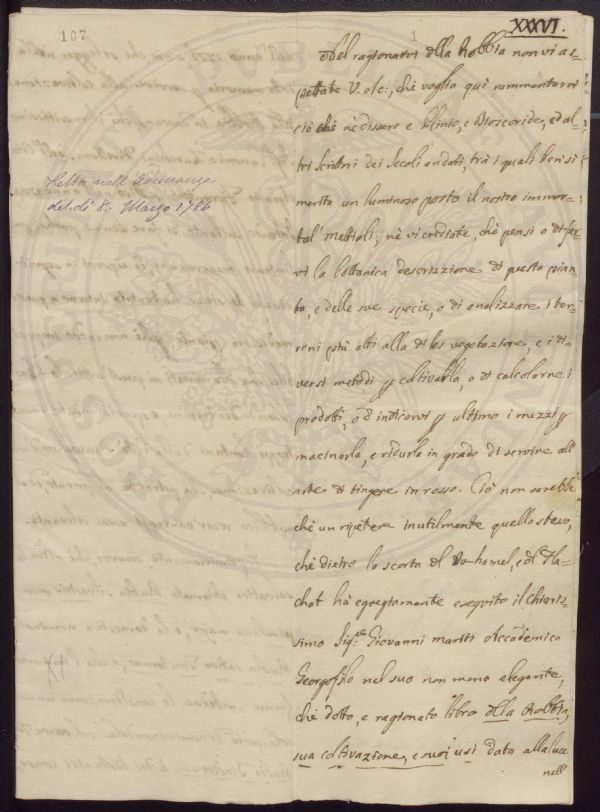 107
1
XXVI.
Letta nell' Adunanza
del dì 8. Marzo 1786
Del ragionarvi della Robbia non vi as-
pettate V. , chè voglia qui rammentarvi
ciò chè nè dissero e Plinio, e Dioscoride, ed al-
tri Scrittori dei Secoli andati, trà i quali ben si
merita un luminoso posto il nostro immor-
tal' Mattioli; nè vi crediate, chè pensi o di far-
vi la bottanica descrizzione di questa pian-
ta, e delle sue specie, o di analizzare i ter-
reni più atti alla di lei vegetazione, e i di-
versi metodi p coltivarla, o di calcolarne i
prodotti, o d'indicarvi p ultimo i mezzi p
macinarla, e ridurla in grado di servire all'
arte di tingere in rosso. Ciò non sarebbe
chè un ripetere inutilmente quello stesso,
chè dietro la scorta del Du-hamel, e del Fla-
chat hà egregiamente eseguito il chiaris-
simo Sig.re Giovanni Mariti Accademico
Georgofilo nel suo non meno elegante,
chè dotto, e ragionato libro della Robbia,
sua coltivazione, e suoi usi data alla luce
nell'